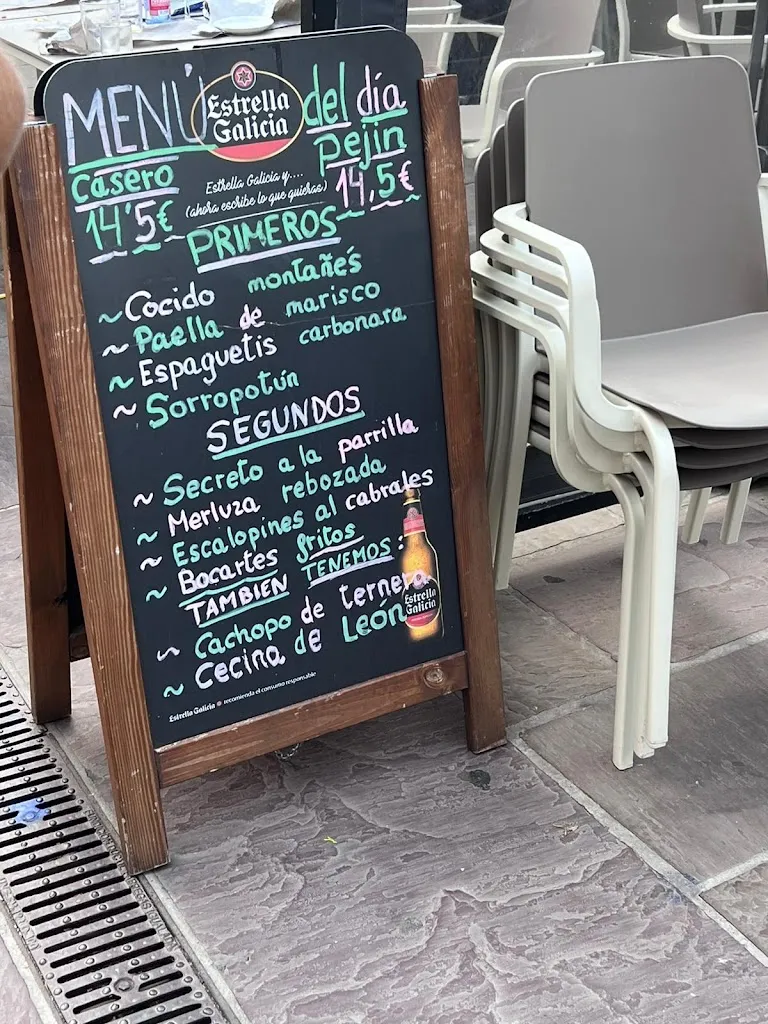 MENÚ Estrella Galicia del día
casero pejin
14'5€ 14,5€
Estrella Galicia y....
(ahora escribe lo que quieras)
PRIMEROS
~ Cocido montañés
~ Paella de marisco
~ Espaguetis carbonara
~ Sorropotún
SEGUNDOS
~ Secreto a la parrilla
~ Merluza rebozada
~ Escalopines al cabrales
~ Bocartes fritos
TAMBIEN TENEMOS:
~ Cachopo de ternera
~ Cecina de León
Estrella Galicia
Estrella Galicia recomienda el consumo responsable